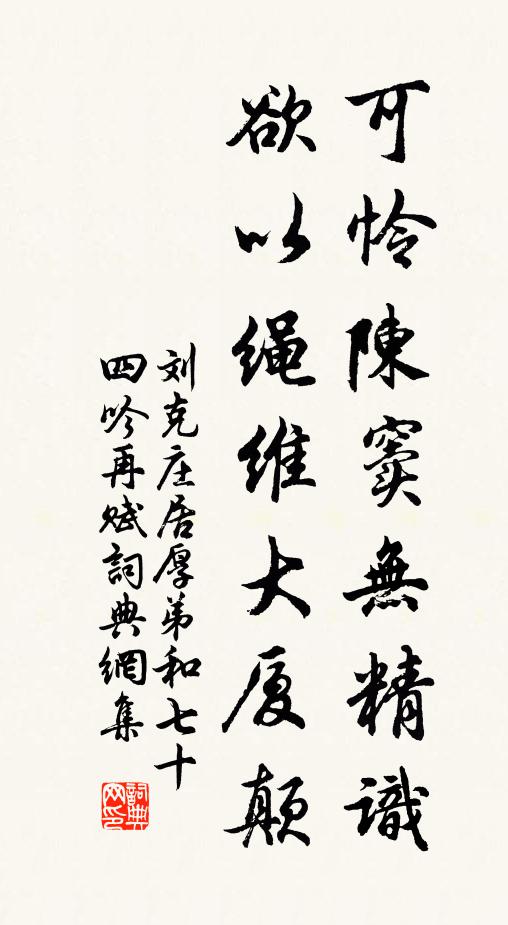 可怜陳竇無精識
欲以绳維大厦颠
刘克庄居厚弟和七十
四吟再赋詞典網集
詞典网印